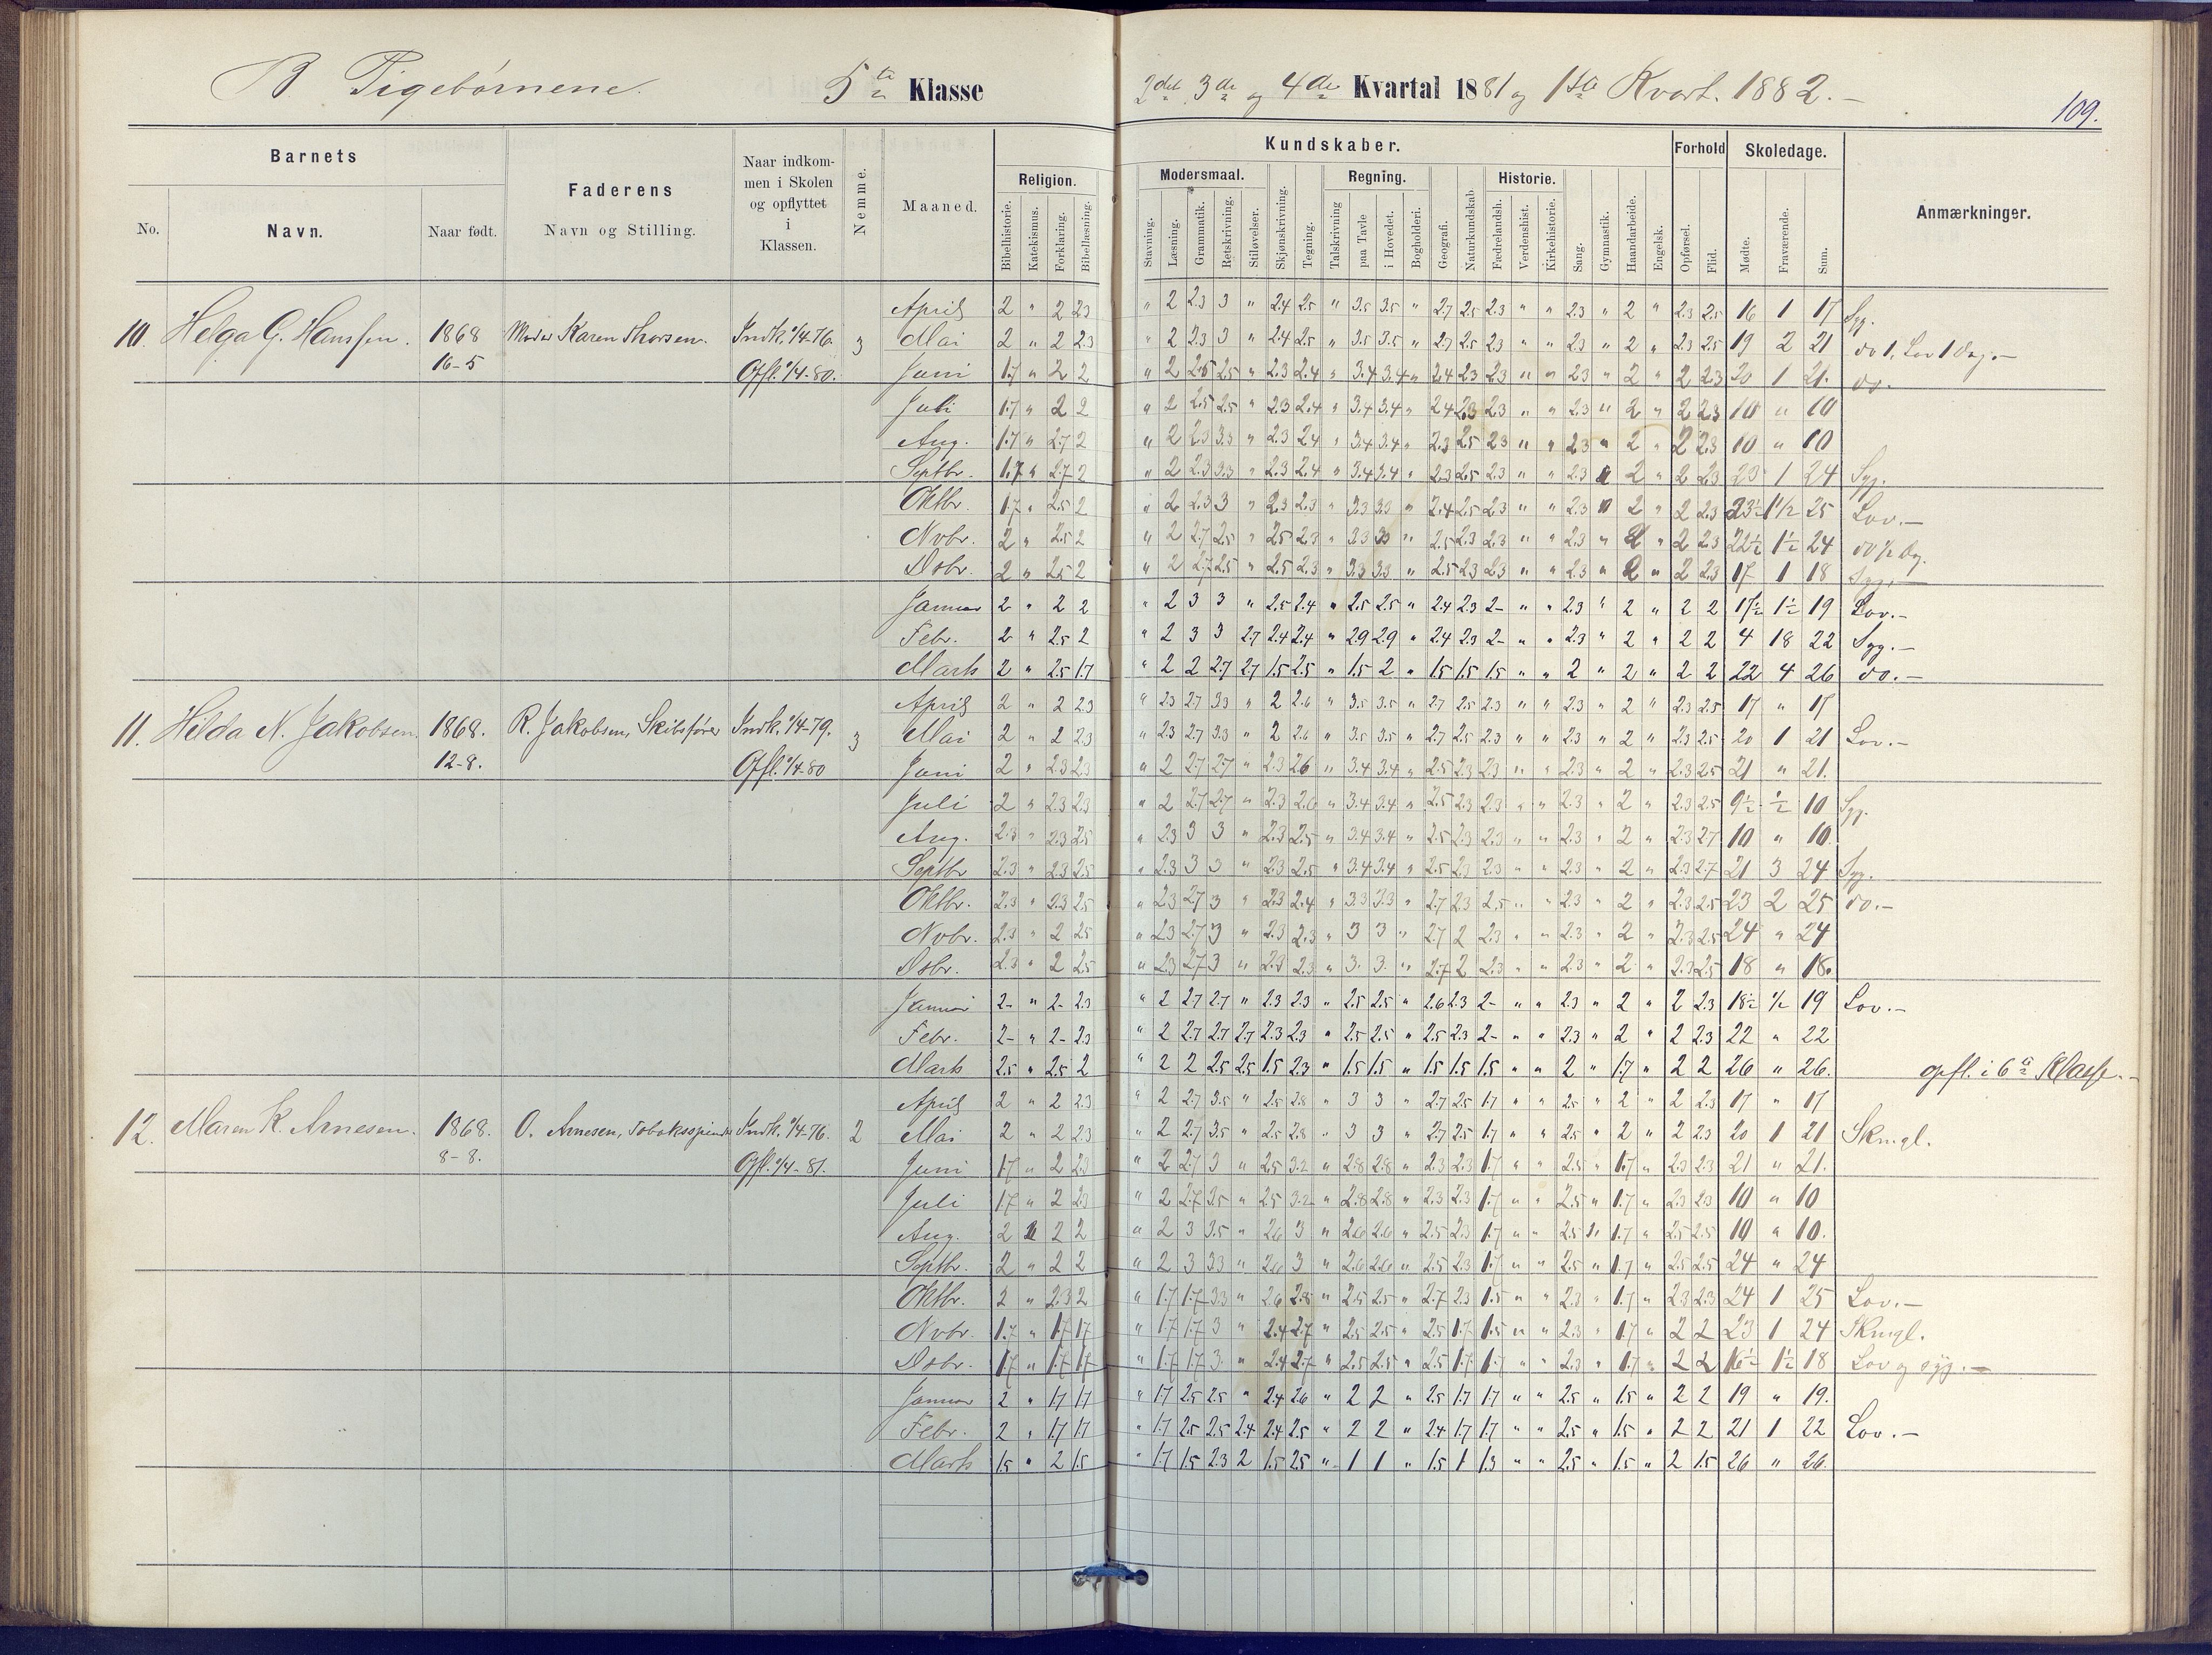 B Pigebørnene. 5te Klasse 2det 3de og 4de Kvartal 1881 og 1ste Kvart. 1882.-
109.
Barnets
No. Navn. Naar født.
Faderens
Navn og Stilling.
Naar indkom-
men i Skolen
og opflyttet
i
Klassen.
Nemme.
Maaned.
Kundskaber.
Religion.
Bibelhistorie. Katekismus. Forklaring. Bibellæsning.
Modersmaal.
Stavning. Læsning. Grammatik. Retskrivning. Stiløvelser.
Skjønskrivning. Tegning.
Regning.
Talskrivning paa Tavle i Hovedet. Bogholderi.
Geografi. Naturkundskab
Historie.
Fædrelandsh. Verdenshist. Kirkehistorie.
Sang. Gymnastik. Haandarbeide. Engelsk.
Forhold
Opførsel. Flid.
Skoledage.
Mødte. Fraværende. Sum.
Anmærkninger.
10. Helga G. Hanssen. 1868 16-5 Moder Karen Thorsen. Indk. 1/4-76. Opfl. 1/4-80. 3
April 2 " 2 2.3 " 2 2.3 3 " 2.4 2.5 " 3.5 3.5 " 2.7 2.5 2.3 " " 2.3 " 2 " 2.3 2.5 16 1 17 Syg.
Mai 2 " 2 2.3 " 2 2.3 3 " 2.4 2.5 " 3.5 3.5 " 2.7 2.5 2.3 " " 2.3 " 2 " 2.3 2.5 19 2 21 do 1, Lov 1 Dag.-
Juni 1.7 " 2 2 " 2 2.5 2.5 " 2.3 2.4 " 3.4 3.4 " 2.4 2.3 2.3 " " 2.3 " 2 " 2 2.3 20 1 21. do.
Juli 1.7 " 2 2 " 2 2.5 2.5 " 2.3 2.4 " 3.4 3.4 " 2.4 2.3 2.3 " " 2.3 " 2 " 2 2.3 10 " 10
Aug. 1.7 " 2.7 2 " 2 2.3 3.3 " 2.3 2.4 " 3.4 3.4 " 2.3 2.5 2.3 " " 2.3 " 2 " 2 2.3 10 " 10
Septbr. 1.7 " 2.7 2 " 2 2.3 3.3 " 2.3 2.4 " 3.4 3.4 " 2.3 2.5 2.3 " " 2.3 " 2 " 2 2.3 23 1 24 Syg.
Oktbr. 1.7 " 2.5 2 " 2 2.3 3 " 2.3 2.3 " 3.3 3.3 " 2.4 2.5 2.3 " " 2.3 " 2 " 2 2.3 23½ 1½ 25 Lov.-
Nvbr. 2 " 2.5 2 " 2 2.7 2.5 " 2.5 2.3 " 3.3 3.3 " 2.5 2.3 2.3 " " 2.3 " 2 " 2 2.3 22½ 1½ 24 do ½ Dag.
Dsbr. 2 " 2.5 2 " 2 2.7 2.5 " 2.5 2.3 " 3.3 3.3 " 2.5 2.3 2.3 " " 2.3 " 2 " 2 2.3 17 1 18 Syg.-
Januar 2 " 2 2 " 2 3 3 " 2.5 2.4 " 2.5 2.5 " 2.4 2.3 2- " " 2.3 " 2 " 2 2 17½ 1½ 19 Lov.-
Febr. 2 " 2.5 2 " 2 3 3 2.7 2.4 2.4 " 2.9 2.9 " 2.4 2.3 2- " " 2.3 " 2 " 2 2 4 18 22 Syg.-
Marts 2 " 2.5 1.7 " 2 2 2.7 2.7 1.5 2.5 " 1.5 2 " 1.5 1.5 1.5 " " 2 " 2 " 2 2 22 4 26 do.-
11. Hilda N. Jakobsen. 1868. 12-8. R. Jakobsen, Skibsfører Indk. 1/4-79. Opfl. 1/4-80 3
April 2 " 2 2.3 " 2.3 2.7 3.3 " 2 2.6 " 3.5 3.5 " 2.7 2.5 2.3 " " 2.3 " 2 " 2.3 2.5 17 " 17
Mai 2 " 2 2.3 " 2.3 2.7 3.3 " 2 2.6 " 3.5 3.5 " 2.7 2.5 2.3 " " 2.3 " 2 " 2.3 2.5 20 1 21 Lov.-
Juni 2 " 2.3 2.3 " 2 2.7 2.7 " 2.3 2.6 " 3.4 3.4 " 2.5 2.3 2.3 " " 2.3 " 2 " 2.3 2.5 21 " 21.
Juli 2 " 2.3 2.3 " 2 2.7 2.7 " 2.3 2.6 " 3.4 3.4 " 2.5 2.3 2.3 " " 2.3 " 2 " 2.3 2.5 9½ ½ 10 Syg.
Aug. 2.3 " 2.3 2.5 " 2.3 3 3 " 2.3 2.5 " 3.4 3.4 " 2.5 2.3 2.3 " " 2.3 " 2 " 2.3 2.7 10 " 10
Septbr 2.3 " 2.3 2.5 " 2.3 3 3 " 2.3 2.5 " 3.4 3.4 " 2.5 2.3 2.3 " " 2.3 " 2 " 2.3 2.7 21 3 24 Syg.
Oktbr. 2.3 " 2.3 2.5 " 2.3 2.7 3 " 2.3 2.4 " 3.3 3.3 " 2.7 2.3 2.5 " " 2.3 " 2 " 2.3 2.5 23 2 25 do.-
Nvbr. 2.3 " 2 2.5 " 2.3 2.7 3 " 2.3 2.3 " 3 3 " 2.7 2 2.3 " " 2.3 " 2 " 2.3 2.5 24 " 24
Dsbr. 2.3 " 2 2.5 " 2.3 2.7 3 " 2.3 2.3 " 3. 3. " 2.7 2 2.3 " " 2.3 " 2 " 2.3 2.5 18 " 18.
Januar 2- " 2- 2.3 " 2 2.7 2.7 " 2.3 2.3 " 2.5 2.5 " 2.6 2.3 2- " " 2.3 " 2 " 2 2.3 18½ ½ 19 Lov.-
Febr. 2- " 2- 2.3 " 2 2.7 2.7 2.7 2.3 2.3 " 2.5 2.5 " 2.5 2.3 2- " " 2.3 " 2 " 2 2.3 22 " 22
Marts 2.5 " 2.5 2 " 2 2 2.5 2.5 1.5 2.3 " 1.5 1.5 " 1.5 1.5 1.5 " " 2 " 1.7 " 2 2 26 " 26. opfl. i 6te Klasse.-
12. Maren K. Arnesen. 1868. 8-8. O. Arnesen, Tobaksspinder Indk. 1/4-76. Opfl. 1/4-81. 2
April 2 " 2 2.3 " 2 2.7 3.5 " 2.5 2.8 " 3 3 " 2.7 2.5 1.7 " " 2.5 " 2 " 2 2.3 17 " 17
Mai 2 " 2 2.3 " 2 2.7 3.5 " 2.5 2.8 " 3 3 " 2.7 2.5 1.7 " " 2.5 " 2 " 2 2.3 20 1 21 Skmgl.
Juni 1.7 " 2 2.3 " 2 2.7 3 " 2.5 3.2 " 2.8 2.8 " 2.3 2.3 1.7 " " 2.5 " 1.7 " 2.3 2.3 21 " 21.
Juli 1.7 " 2 2.3 " 2 2.7 2.5 " 2.5 3.2 " 2.8 2.8 " 2.3 2.3 1.7 " " 2.5 " 1.7 " 2.3 2.3 10 " 10
Aug. 2 " 2 2 " 2 3 3.5 " 2.6 3 " 2.6 2.6 " 2.5 2.3 1.7 " " 2.5 " 1.7 " 2.5 2.5 10 " 10.
Septbr. 2 " 2 2 " 2 3 3.3 " 2.6 3 " 2.6 2.6 " 2.5 2.3 1.7 " " 2.5 " 1.7 " 2.5 2.5 24 " 24
Oktbr. 2 " 2.3 2 " 1.7 1.7 3.3 " 2.6 2.8 " 2.5 2.5 " 2.7 2.3 1.5 " " 2.3 " 1.7 " 2.3 2.3 24 1 25 Lov.-
Nvbr. 1.7 " 1.7 1.7 " 1.7 1.7 3 " 2.4 2.7 " 2.5 2.5 " 2.5 1.7 1.5 " " 2.3 " 1.7 " 2 2 23 1 24 Skmgl.
Dsbr. 1.7 " 1.7 1.7 " 1.7 1.7 3 " 2.4 2.7 " 2.5 2.5 " 2.5 1.7 1.7 " " 2.3 " 1.7 " 2 2 16½ 1½ 18 Lov og syg.-
Januar 2 " 1.7 1.7 " 1.7 2.5 2.5 " 2.4 2.6 " 2 2 " 2.5 1.7 1.7 " " 2.5 " 1.5 " 2 2 19 " 19.
Febr. 2 " 1.7 1.7 " 1.7 2.5 2.5 2.4 2.4 2.5 " 2 2 " 2.4 1.7 1.7 " " 2.5 " 1.5 " 2 2 21 1 22 Lov.-
Marts 1.5 " 2 1.5 " 1.7 1.5 2.3 2 1.5 2.5 " 1 1 " 1.5 1 1.3 " " 2.5 " 1.5 " 2 1.5 26 " 26.